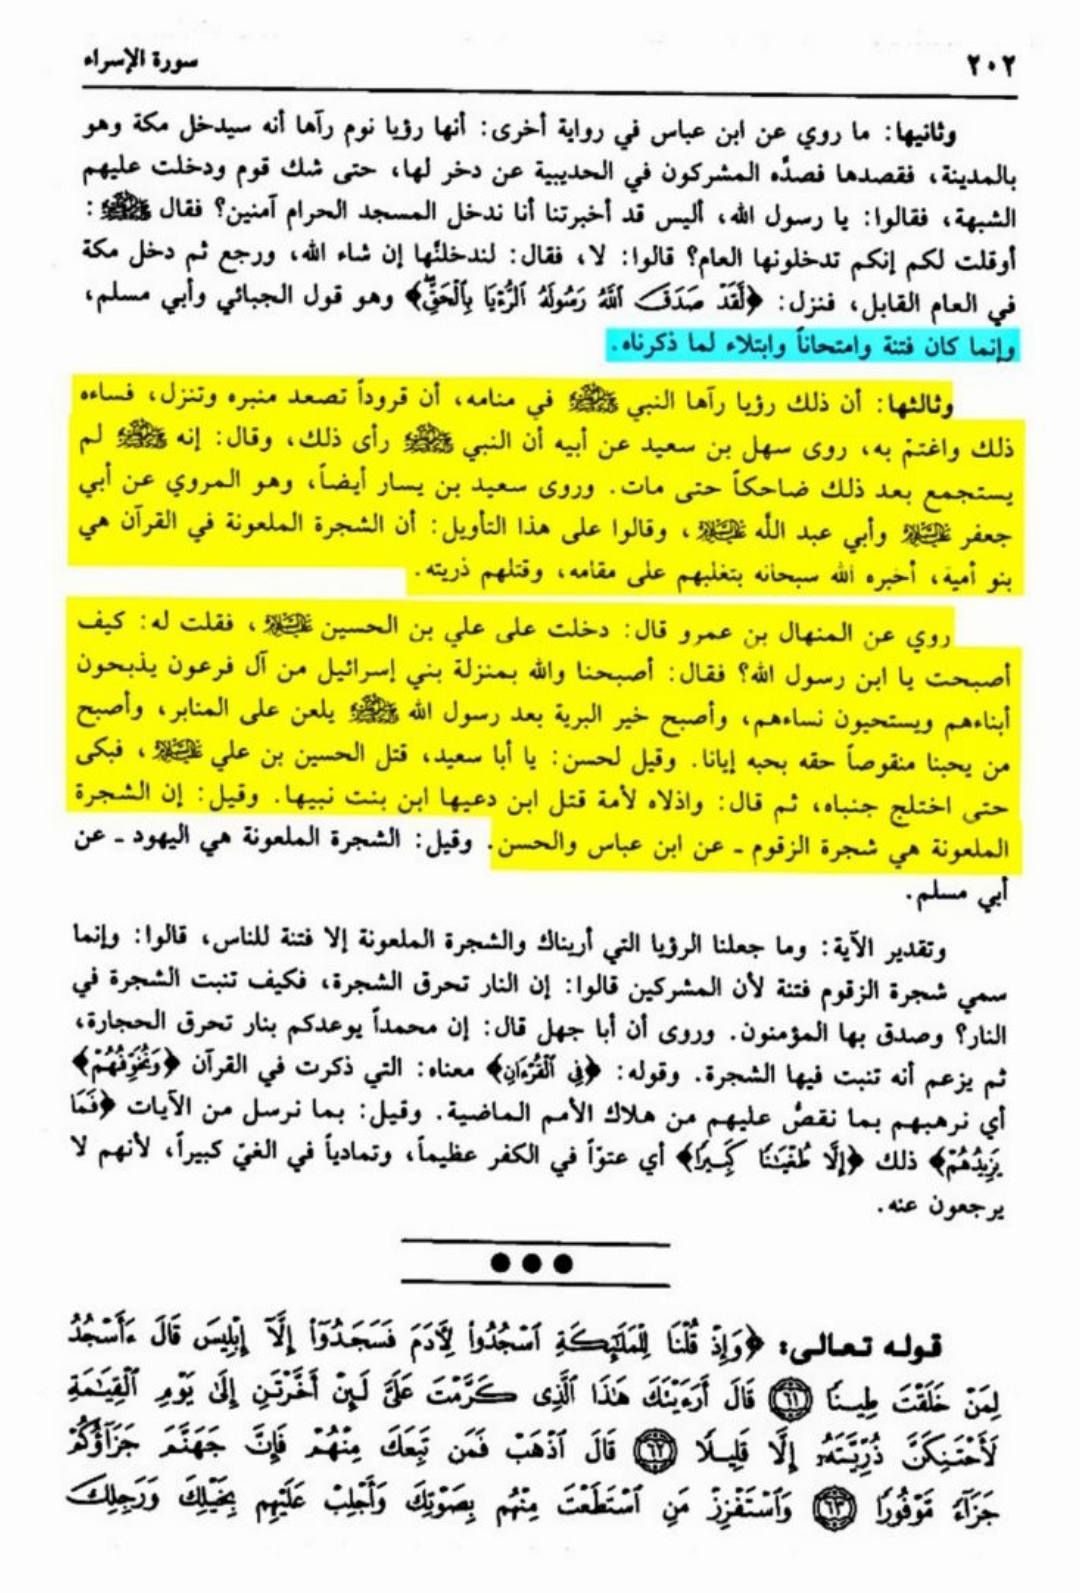 ٢٠٢
سورة الإسراء
وثانيها: ما روي عن ابن عباس في رواية أخرى: أنها رؤيا نوم رآها أنه سيدخل مكة وهو
بالمدينة، فقصدها فصدَّه المشركون في الحديبية عن دخر لها، حتى شك قوم ودخلت عليهم
الشبهة، فقالوا: يا رسول الله، أليس قد أخبرتنا أنا ندخل المسجد الحرام آمنين؟ فقال ﷺ:
أوقلت لكم إنكم تدخلونها العام؟ قالوا: لا، فقال: لندخلنّها إن شاء الله، ورجع ثم دخل مكة
في العام القابل، فنزل: ﴿لَّقَدْ صَدَقَ ٱللَّهُ رَسُولَهُ ٱلرُّءْيَا بِٱلْحَقِّ﴾ وهو قول الجبائي وأبي مسلم،
وإنما كان فتنة وامتحاناً وابتلاء لما ذكرناه.
وثالثها: أن ذلك رؤيا رآها النبي ﷺ في منامه، أن قروداً تصعد منبره وتنزل، فساءه
ذلك واغتمّ به، روى سهل بن سعيد عن أبيه أن النبي ﷺ رأى ذلك، وقال: إنه ﷺ لم
يستجمع بعد ذلك ضاحكاً حتى مات. وروى سعيد بن يسار أيضاً، وهو المروي عن أبي
جعفر عليه السلام وأبي عبد اللَّه عليه السلام، وقالوا على هذا التأويل: أن الشجرة الملعونة في القرآن هي
بنو أمية، أخبره الله سبحانه بتغلبهم على مقامه، وقتلهم ذريته.
روي عن المنهال بن عمرو قال: دخلت على علي بن الحسين عليه السلام، فقلت له: كيف
أصبحت يا ابن رسول الله؟ فقال: أصبحنا والله بمنزلة بني إسرائيل من آل فرعون يذبحون
أبناءهم ويستحيون نساءهم، وأصبح خير البرية بعد رسول الله ﷺ يلعن على المنابر، وأصبح
من يحبنا منقوصاً حقه بحبه إيانا. وقيل لحسن: يا أبا سعيد، قتل الحسين بن علي عليه السلام، فبكى
حتى اختلج جنباه، ثم قال: واذلاه لأمة قتل ابن دعيها ابن بنت نبيها. وقيل: إن الشجرة
الملعونة هي شجرة الزقوم ـ عن ابن عباس والحسن. وقيل: الشجرة الملعونة هي اليهود ـ عن
أبي مسلم.
وتقدير الآية: وما جعلنا الرؤيا التي أريناك والشجرة الملعونة إلا فتنة للناس، قالوا: وإنما
سمي شجرة الزقوم فتنة لأن المشركين قالوا: إن النار تحرق الشجرة، فكيف تنبت الشجرة في
النار؟ وصدق بها المؤمنون. وروى أن أبا جهل قال: إن محمداً يوعدكم بنار تحرق الحجارة،
ثم يزعم أنه تنبت فيها الشجرة. وقوله: ﴿فِى ٱلْقُرْءَانِ﴾ معناه: التي ذكرت في القرآن ﴿وَنُخَوِّفُهُمْ﴾
أي نرهبهم بما نقصُّ عليهم من هلاك الأمم الماضية. وقيل: بما نرسل من الآيات ﴿فَمَا
يَزِيدُهُمْ﴾ ذلك ﴿إِلَّا طُغْيَـٰنًا كَبِيرًا﴾ أي عتوّاً في الكفر عظيماً، وتمادياً في الغيّ كبيراً، لأنهم لا
يرجعون عنه.
قوله تعالى: ﴿وَإِذْ قُلْنَا لِلْمَلَـٰٓئِكَةِ ٱسْجُدُوا۟ لِـَٔادَمَ فَسَجَدُوٓا۟ إِلَّآ إِبْلِيسَ قَالَ ءَأَسْجُدُ
لِمَنْ خَلَقْتَ طِينًا ٦١ قَالَ أَرَءَيْتَكَ هَـٰذَا ٱلَّذِى كَرَّمْتَ عَلَىَّ لَئِنْ أَخَّرْتَنِ إِلَىٰ يَوْمِ ٱلْقِيَـٰمَةِ
لَأَحْتَنِكَنَّ ذُرِّيَّتَهُۥٓ إِلَّا قَلِيلًا ٦٢ قَالَ ٱذْهَبْ فَمَن تَبِعَكَ مِنْهُمْ فَإِنَّ جَهَنَّمَ جَزَآؤُكُمْ
جَزَآءً مَّوْفُورًا ٦٣ وَٱسْتَفْزِزْ مَنِ ٱسْتَطَعْتَ مِنْهُم بِصَوْتِكَ وَأَجْلِبْ عَلَيْهِم بِخَيْلِكَ وَرَجِلِكَ